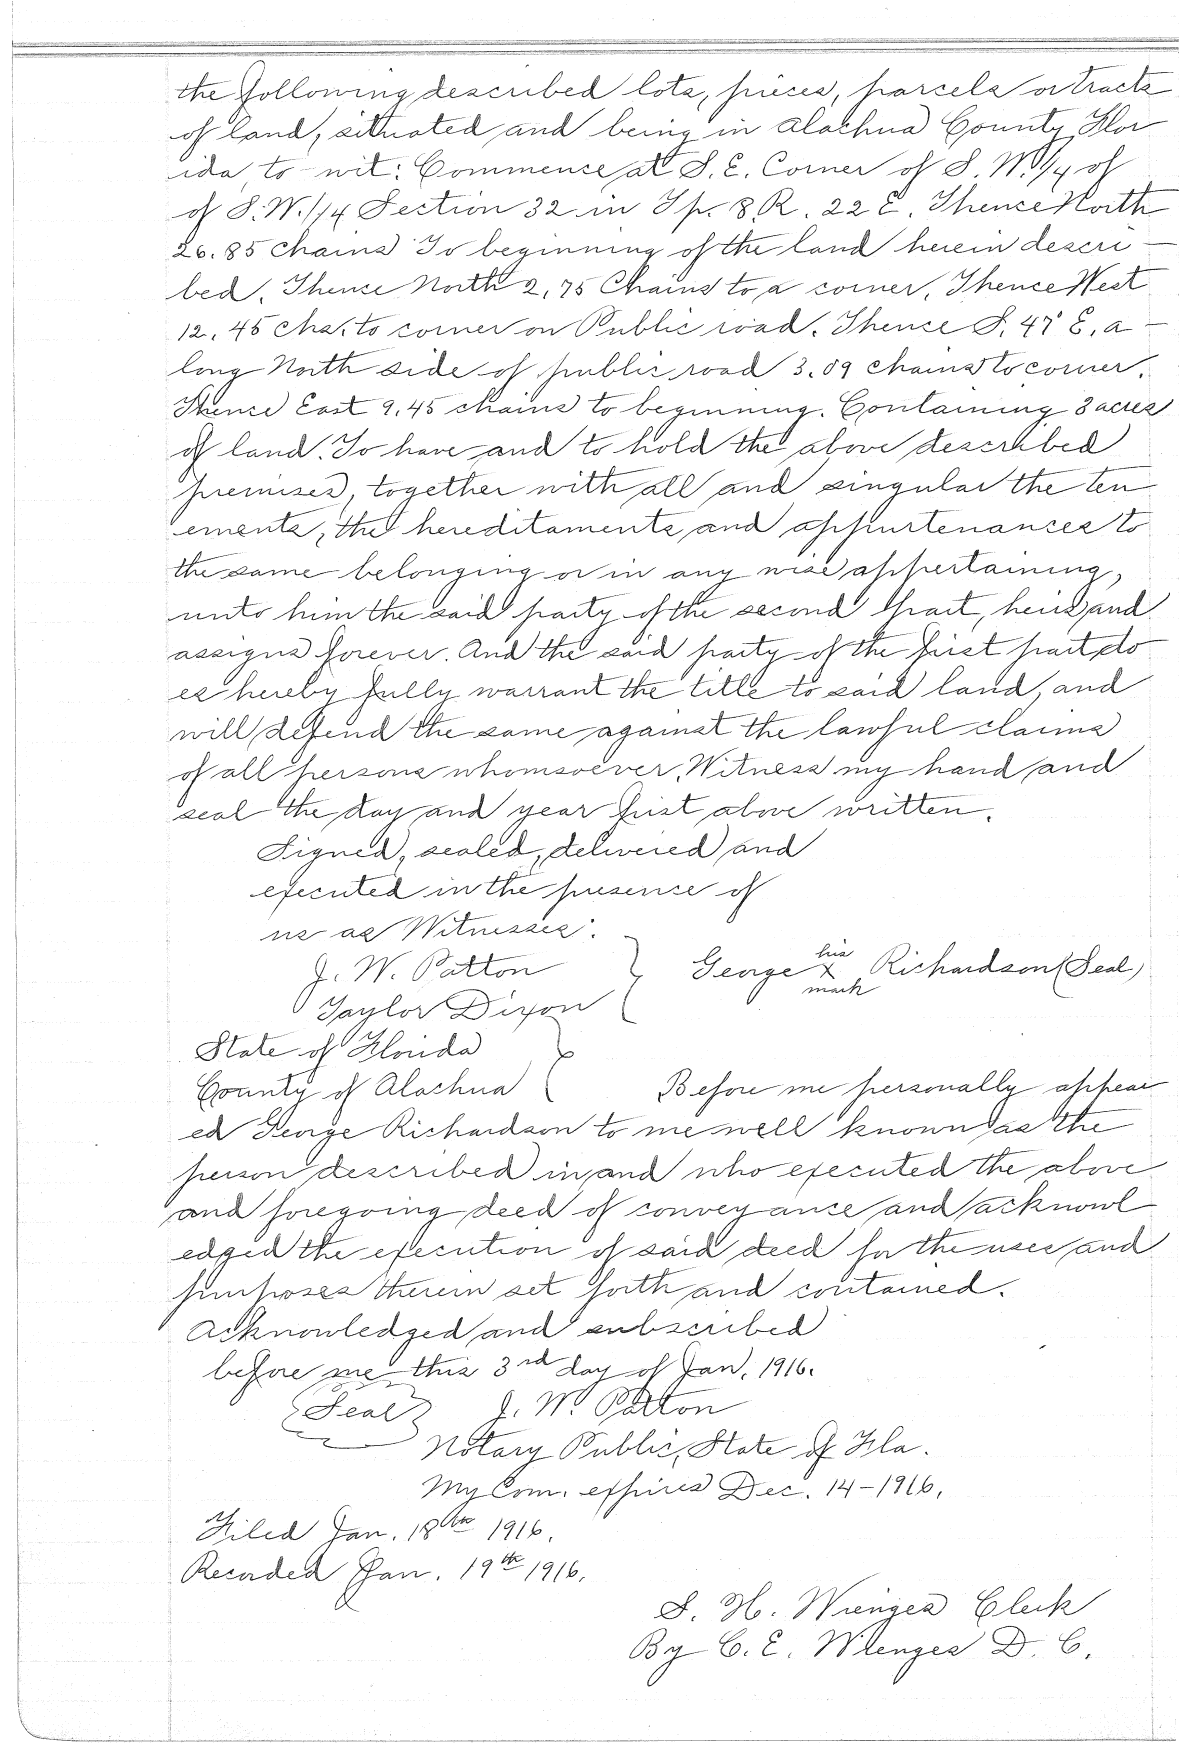 the following described lots, pieces, parcels or tracts
of land, situated and being in Alachua County Flor
ida, to - wit: Commence at S. E. Corner of S. W. 1/4 of
of S. W. 1/4 Section 32 in Tp. 8 R. 22 E. Thence North
26.85 Chains To beginning of the land herein descri -
bed. Thence North 2,75 Chains to a corner. Thence West
12.45 chs. to corner on Public road. Thence S. 47° E. a -
long North side of public road 3.09 chains to corner.
Thence East 9.45 chains to beginning. Containing 3 acres
of land. To have and to hold the above described
premises, together with all and singular the ten
ements, the hereditaments and appurtenances to
the same belonging or in any wise appertaining,
unto him the said party of the second part, heirs and
assigns forever. And the said party of the first part do
es hereby fully warrant the title to said land, and
will defend the same against the lawful claims
of all persons whomsoever. Witness my hand and
seal the day and year first above written.
Signed, sealed, delivered and
executed in the presence of
us as Witnesses:
J. W. Patton } George his X mark Richardson (Seal)
Taylor Dixon
State of Florida }
County of Alachua Before me personally appear
ed George Richardson to me well known as the
person described in and who executed the above
and foregoing deed of conveyance and acknowl
edged the execution of said deed for the uses and
purposes therein set forth and contained.
Acknowledged and subscribed
before me this 3rd day of Jan. 1916.
(Seal) J. W. Patton
Notary Public, State of Fla.
My Com. expires Dec. 14 - 1916.
Filed Jan. 18th 1916.
Recorded Jan. 19th 1916.
S. H. Wienges Clerk
By C. E. Wienges D. C.